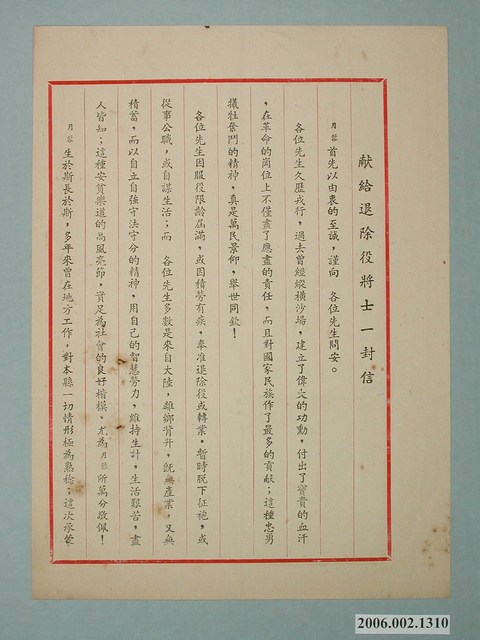 献給退除役將士一封信
月 首先以由衷的至誠，謹向　各位先生問安。
各位先生久歷戎行，過去曾經縱橫沙場，建立了偉大的功勳，付出了寶貴的血汗
，在革命的崗位上不僅盡了應盡的責任，而且對國家民族作了最多的貢献；這種忠勇
犧牲奮鬥的精神，真是萬民景仰，舉世同欽！
各位先生因服役限齡屆滿，或因積勞有疾，奉准退除役或轉業。暫時脫下征袍，或
從事公職，或自謀生活；而　各位先生多數是來自大陸，離鄉背井，既無產業，又無
積蓄，而以自立自強守法守分的精神，用自己的智慧勞力，維持生計，生活艱苦，盡
人皆知；這種安貧樂道的高風亮節，實足為社會的良好楷模，尤為月 所萬分敬佩！
月 生於斯長於斯，多年來曾在地方工作，對本縣一切情形極為熟稔；這次承蒙
2006.002.1310